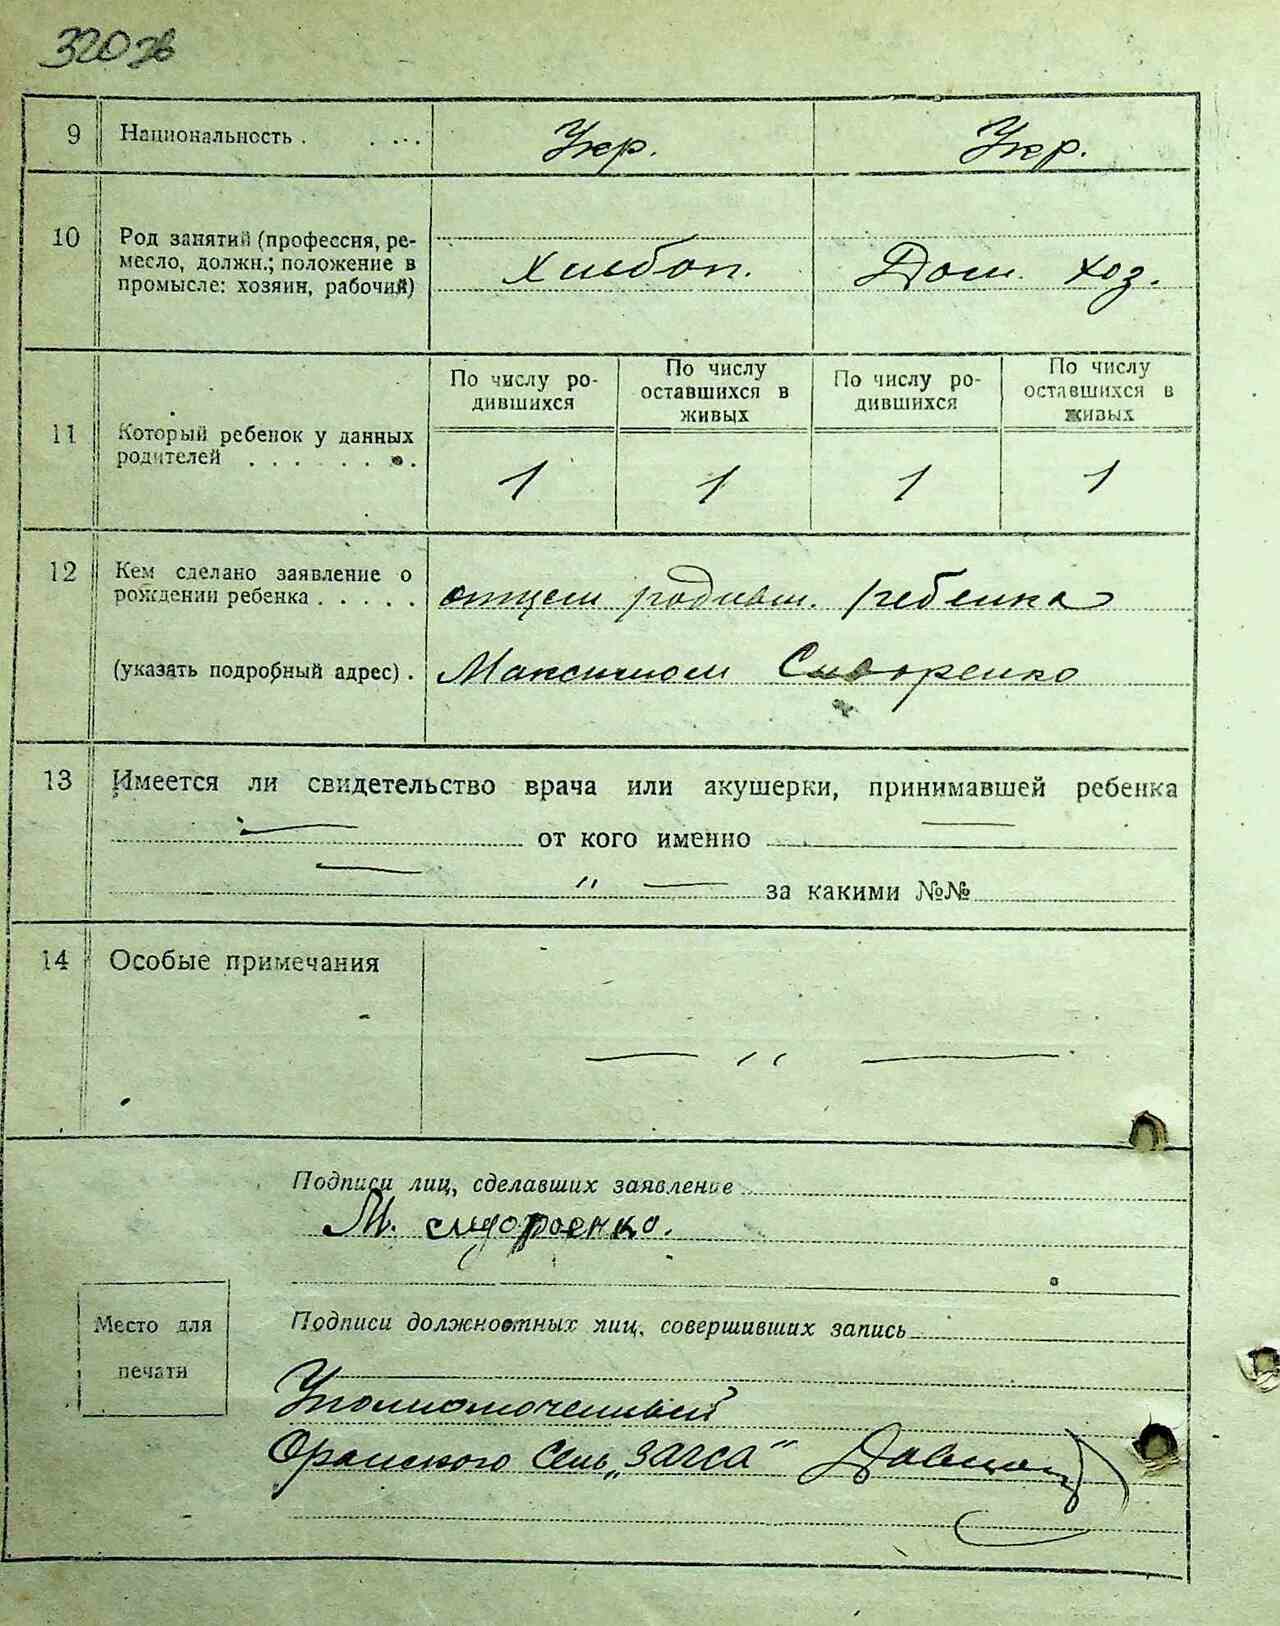 320 зв
9 Национальность . . . . . Укр. Укр.
10 Род занятий (профессия, ре-
месло, должн.; положение в
промысле: хозяин, рабочий)
Хлебоп. Дом. хоз.
По числу ро-
дившихся
По числу
оставшихся в
живых
По числу ро-
дившихся
По числу
оставшихся в
живых
11 Который ребенок у данных
родителей . . . . . . .
1 1 1 1
12 Кем сделано заявление о
рождении ребенка . . . . . отцем родивш. ребенка
(указать подробный адрес) . Максимом Сидоренко
13 Имеется ли свидетельство врача или акушерки, принимавшей ребенка
— от кого именно —
— " — за какими №№
14 Особые примечания
— " —
Подписи лиц, сделавших заявление
М. сидоренко.
Место для
печати
Подписи должностных лиц, совершивших запись
Уполномоченный
Оранского Сель „ЗАГСА"